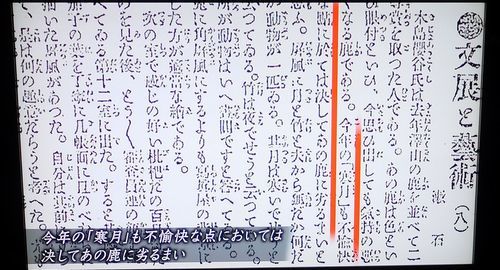 文展と藝術 (八)
漱石
木島櫻谷氏は去年澤山の鹿を並べて二
等賞を取つた人である。あの鹿は色とい
ひ眼付といひ、今思ひ出しても氣持の
な鹿である。今年の「寒月」も不愉快
な點に於ては決してあの鹿に劣るまいと
思ふ。屏風に月と竹と夫から狐だか何だ
か動物が一匹ゐる。其月は寒いでせうと
云つてゐる。竹は夜でせうと云つてゐる
所が動物はいへ晝間ですと答へてゐる。
兎に角屏風にするよりも寫眞屋の背
した方が適當な繪である。
次の室で感じの好い枇杷だの百
を見た後、とう〳〵審査員連の
へてゐる第十二室に出た。すると
茄子の葉を丁寧に几帳面に且つ
描いた屏風があつた。自分は其前
是は何の趣意だらうと考へた
今年の「寒月」も不愉快な点においては
決してあの鹿に劣るまい